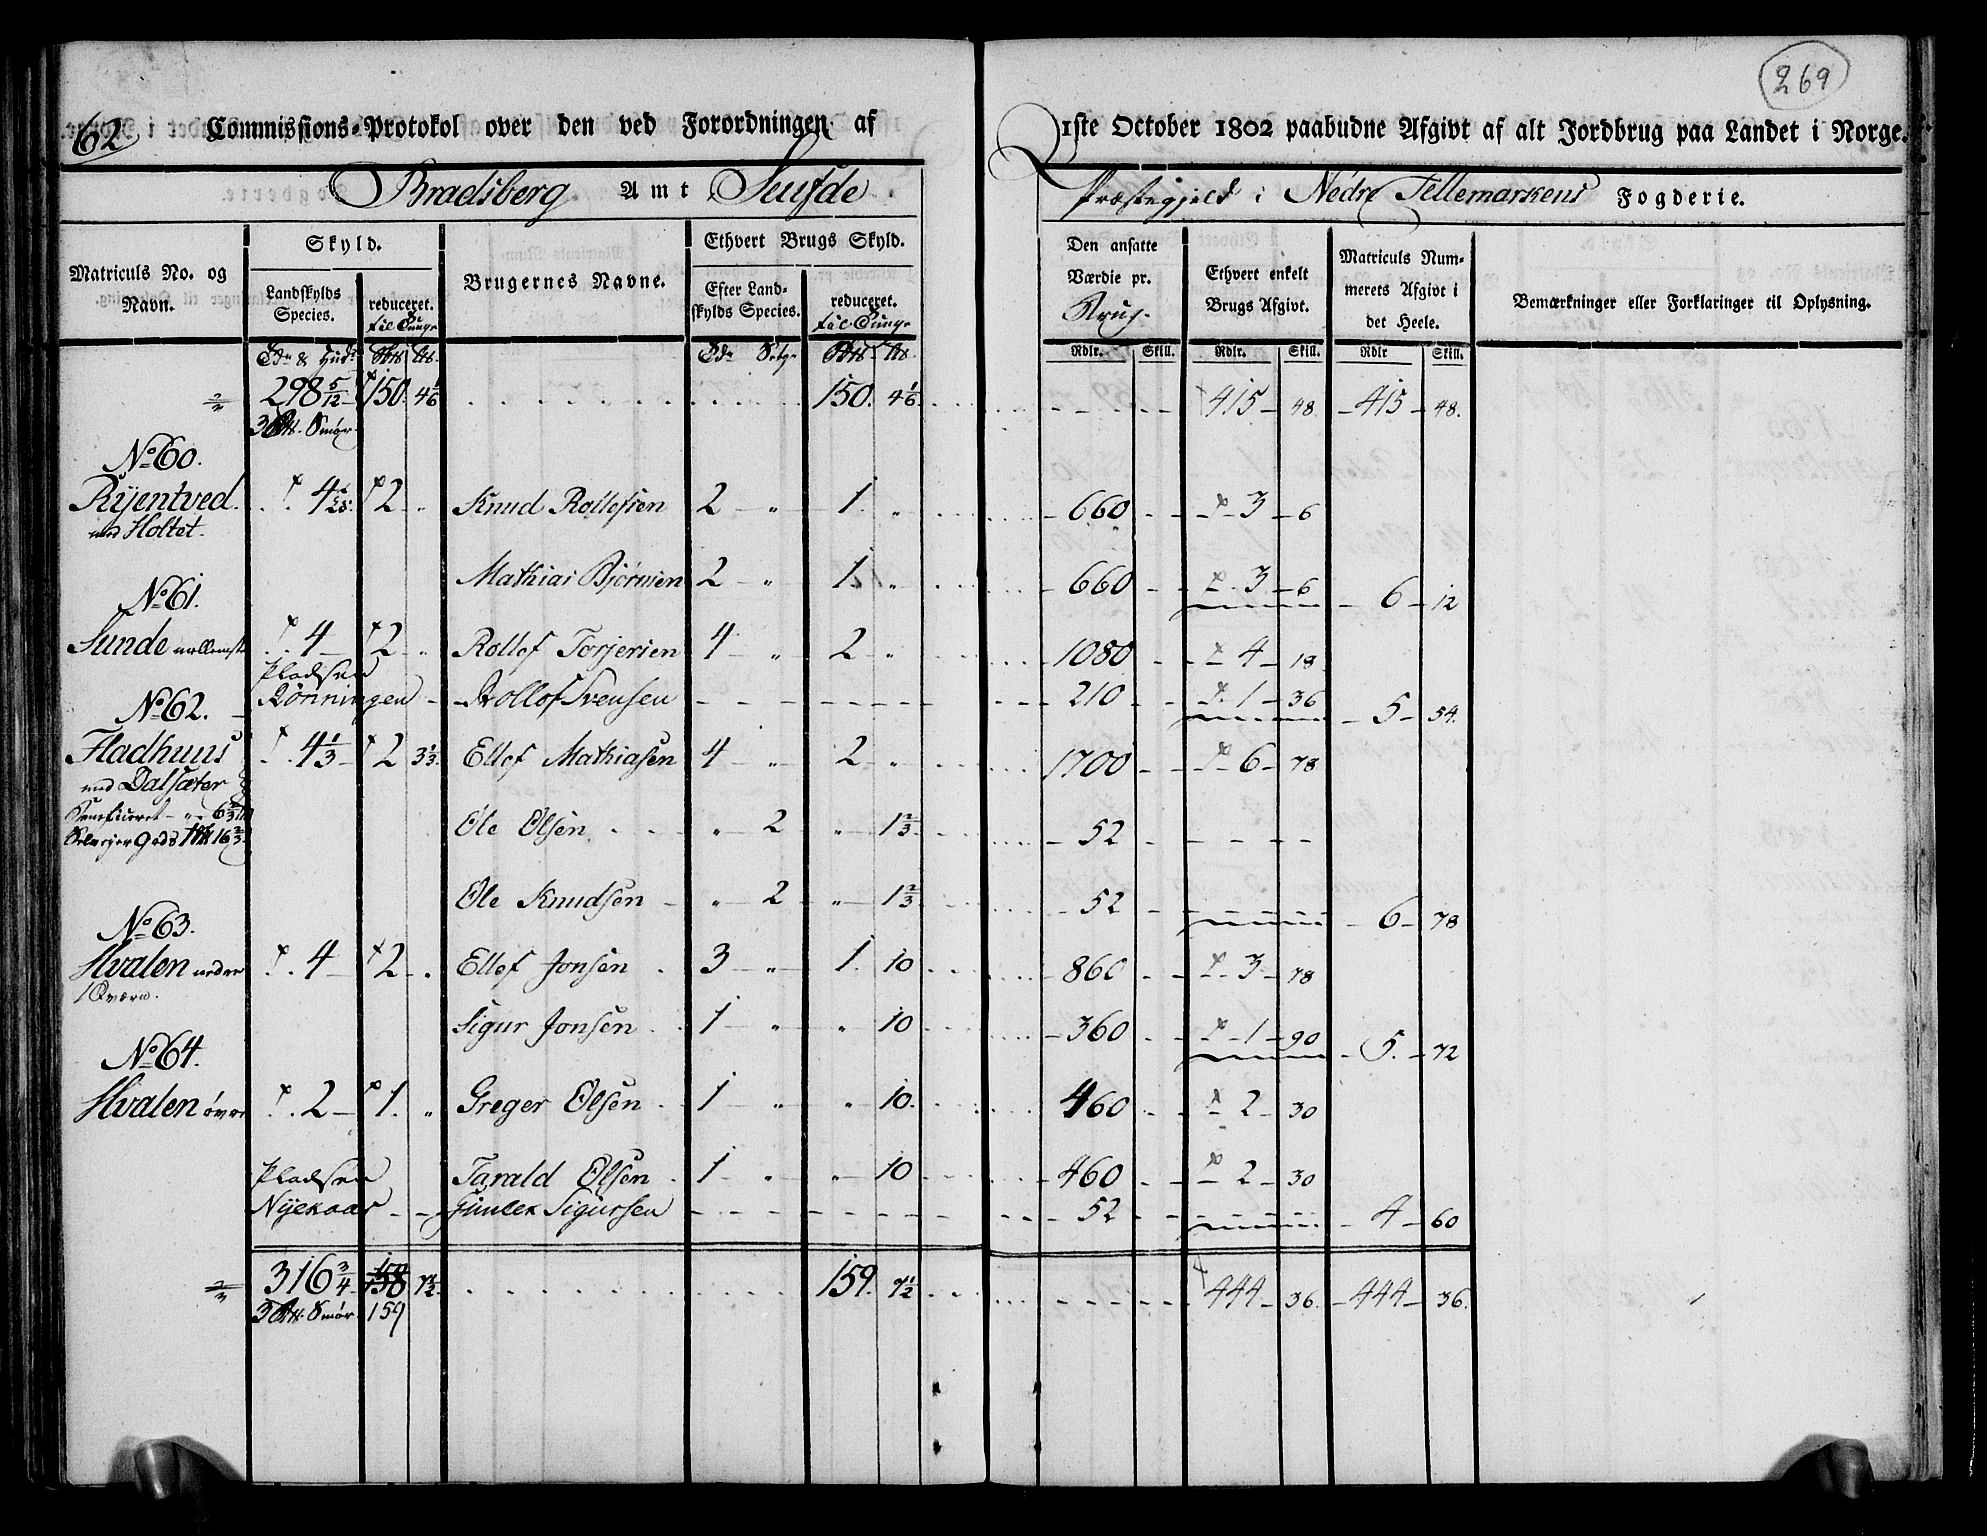 62 Commissions-Protokol over den ved Forordningen af
Bradsberg Amt Seufde
Matriculs No. og Navn.
Skyld.
Landskylds Species.
reduceret. til Tunge
Brugernes Navne.
Ethvert Brugs Skyld.
Efter Landskylds Species.
reduceret. til Tunge
298 5/12 150. 4 1/6 150. 4 1/6
Smør
No 60.
Rijentved 4 2 Knud Rollefsen 2 " 1. "
med Holtet.
Mathias Bjørnsen 2 " 1. "
No 61.
Sunde 4 2 " Rollef Torjersen 4 " 2 "
Pladsen
Rønningen Rollof Svensen
No 62.
Fladhuus 4 1/3 2 3 1/3 Ellef Mathiasen 4 " 2 "
med Dalsæter
Beneficeret " 6 2/3
Selveier Gods 16 2/3
Ole Olsen " 2 " 1 2/3
Ole Knudsen " 2 " 1 2/3
No 63.
Hvalen nedre 4 2 Ellef Jonsen 3 " 1. 10
1 Qværn.
Sigur Jonsen 1 " " 10
No 64.
Hvalen øvre 2 1. " Greger Olsen 1 " " 10.
Tarald Olsen 1 " " 10
Pladsen
Nijekaas Gunlek Sigursen
316 3/4 158 7 1/2 159. 7 1/2
Smør 159
269
1ste October 1802 paabudne Afgivt af alt Jordbrug paa Landet i Norge.
Præstegjeld i Nedre Tellemarkens Fogderie.
Den ansatte Værdie pr. Brug.
Ethvert enkelt Brugs Afgivt.
Matriculs Nummerets Afgivt i det Heele.
Bemærkninger eller Forklaringer til Oplysning.
Rdlr. Skill. Rdlr. Skill. Rdlr Skill.
415 48. 415 48.
660 3 6
660 3 6 6 12
1080 4 18
210 1 36 5 54.
1700 6 78
52
52 6 78
860 3 78
360 1 90 5. 72
460 2 30
460 2 30
52 4 60
444 36. 444 36.